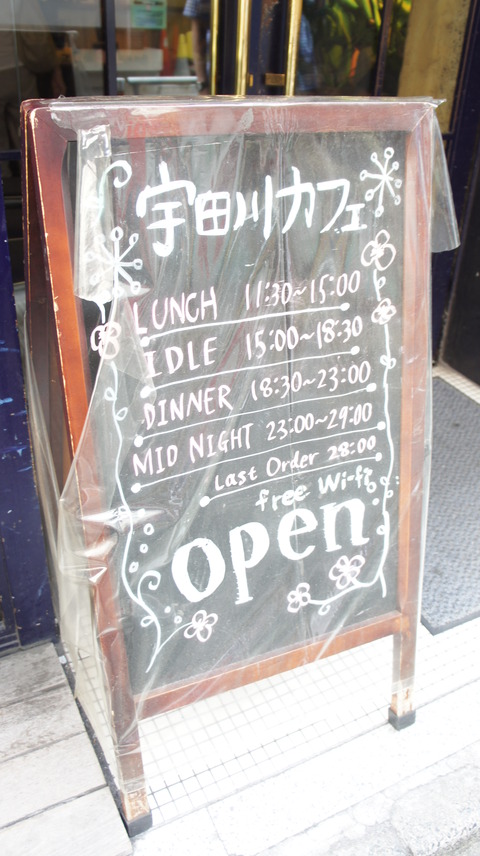 宇田川カフェ
LUNCH 11:30~15:00
IDLE 15:00~18:30
DINNER 18:30~23:00
MID NIGHT 23:00~29:00
Last Order 28:00
free Wi-fi
open